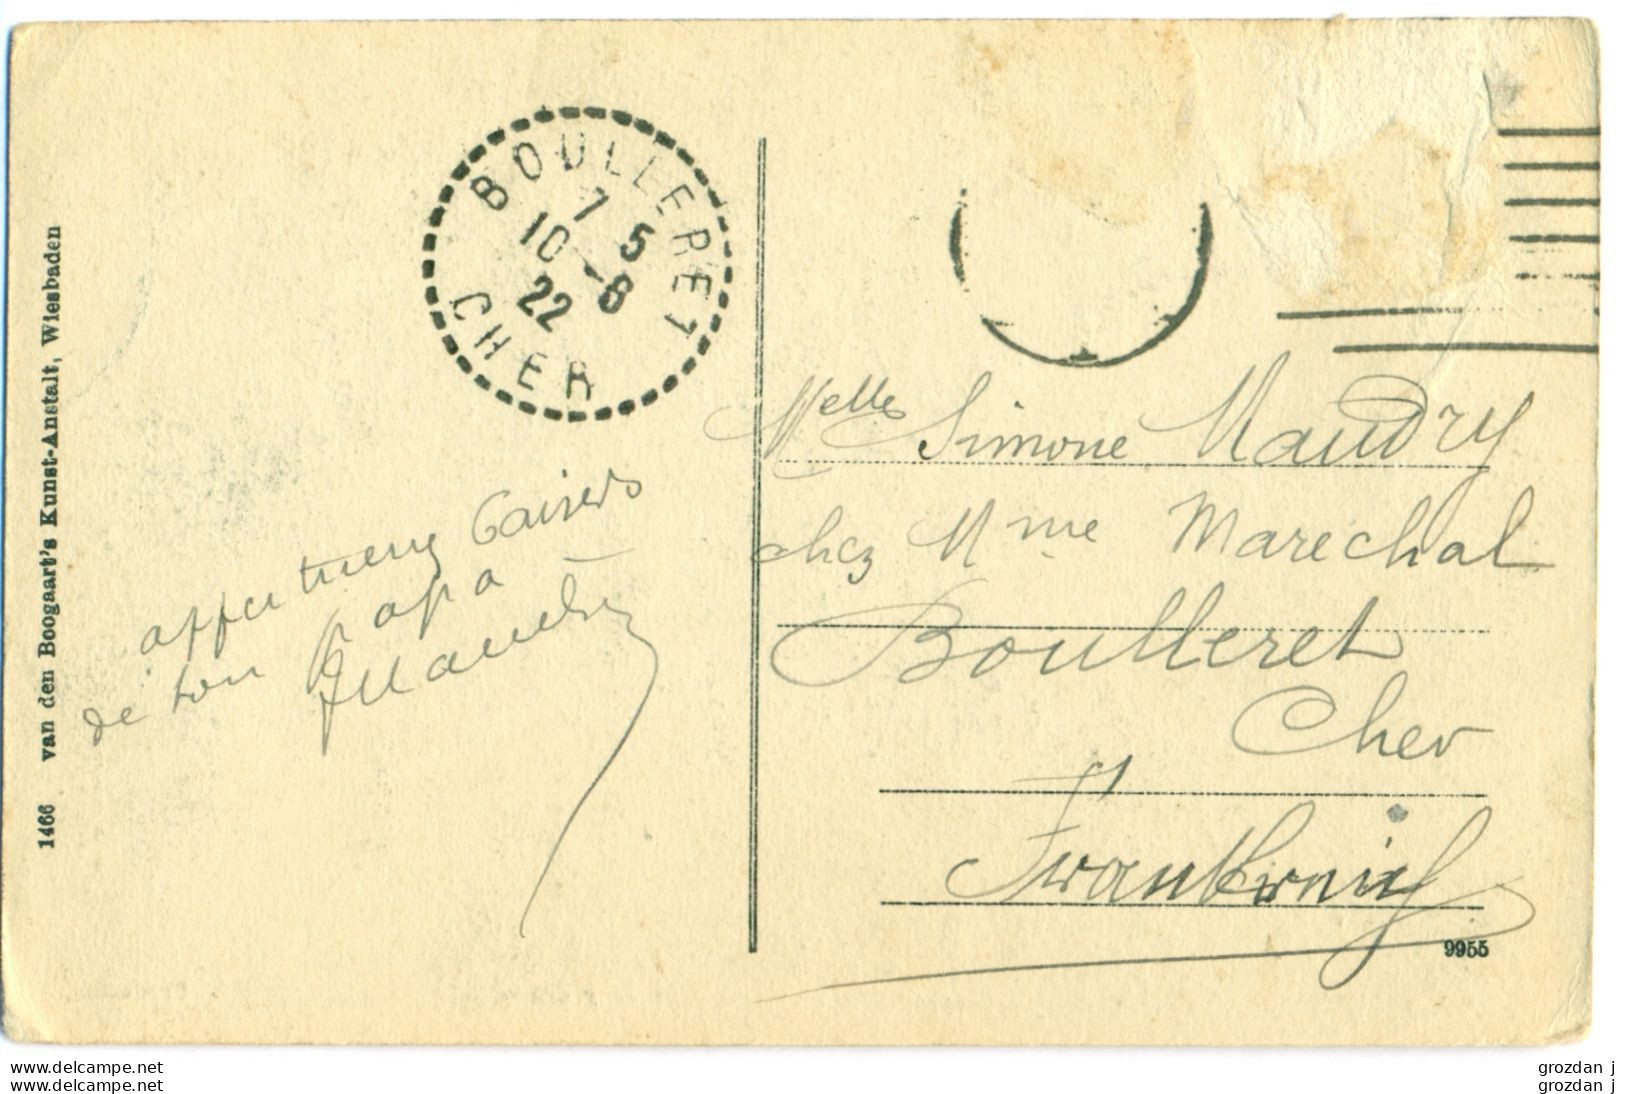 BOULLERET
7 5
10 - 8
22
CHER
1466 van den Boogaart's Kunst-Anstalt, Wiesbaden
affectueux Baisers
de ton Papa
Maudry
Melle Simone Maudry
chez Mme Marechal
Boulleret
Cher
Frankreich
9955
grozdan j
grozdan j
delcampe.net
delcampe.net